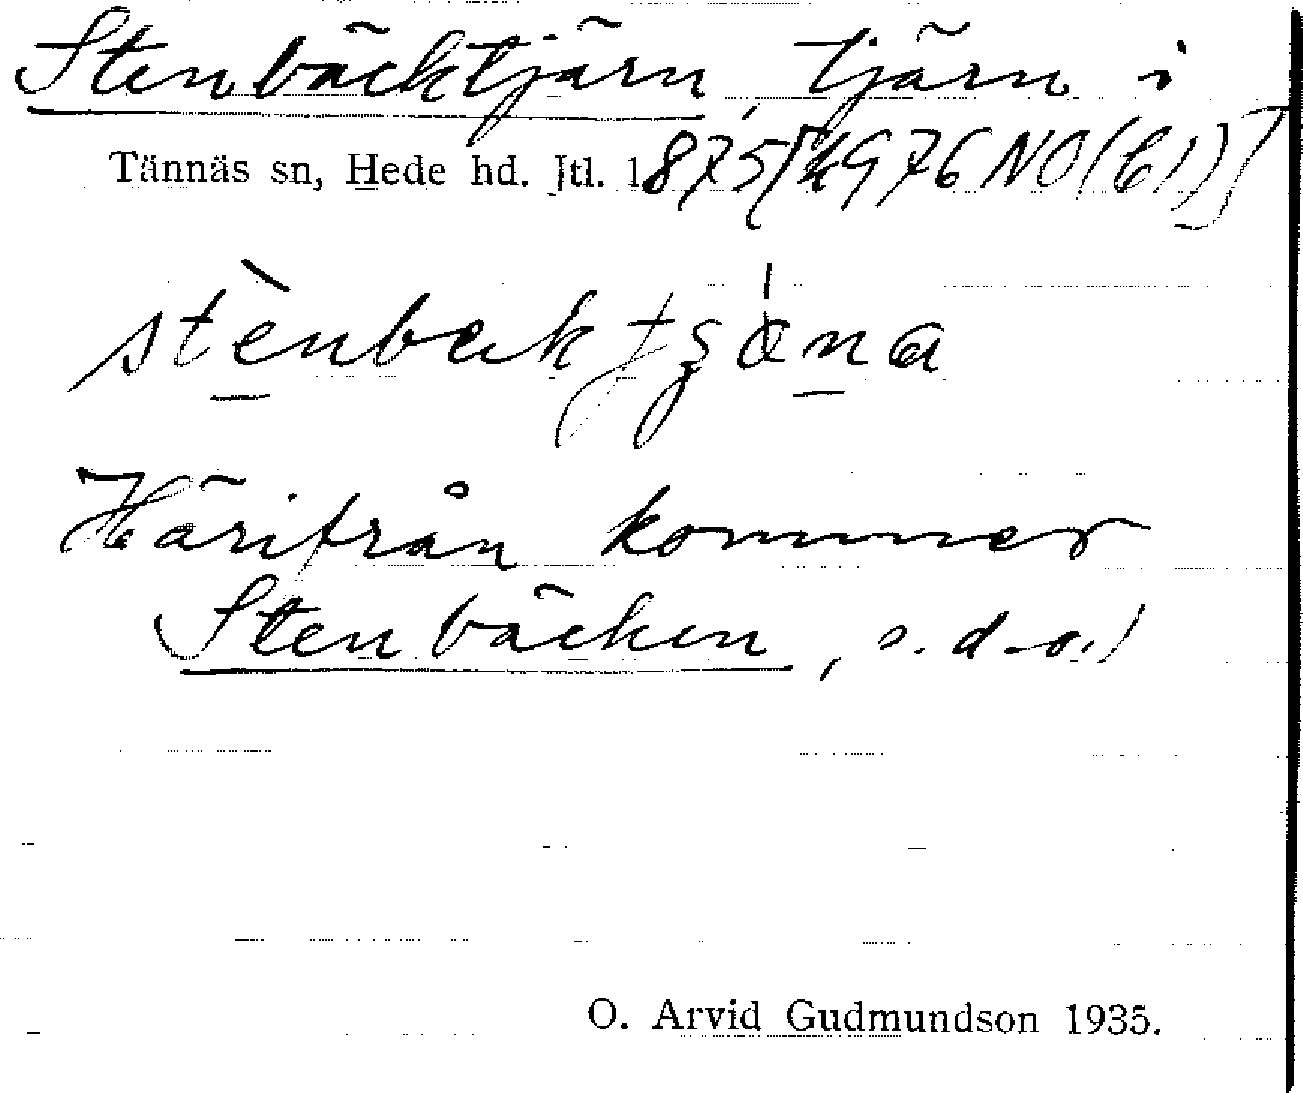 Stenbäcktjärn, tjärn i
Tännäs sn, Hede hd. Jtl. 1875[4976 NO(61)]
Härifrån kommer
Stenbäcken, s.d.o.!
O. Arvid Gudmundson 1935.